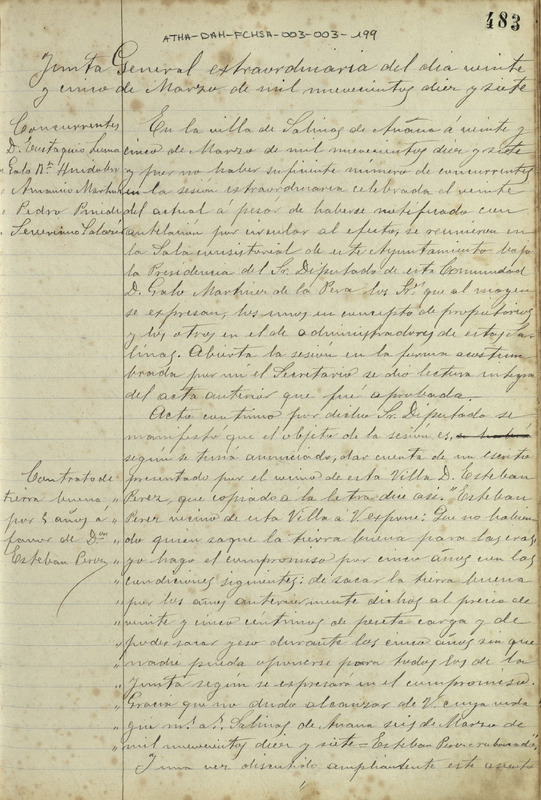 483
ATHA-DAH-FCHSA-003-003-199
Junta General extraordinaria del dia veinte
y cinco de Marzo de mil novecientos diez y siete
Concurrentes
D. Eustaquio
Galo Mz.
" Amancio Martin
" Pedro
" Severiano Salazar
En la villa de Salinas de Añana á veinte y
cinco de Marzo de mil novecientos diez y siete
y por no haber suficiente número de concurrentes
en la sesión extraordinaria celebrada el veinte
del actual á pesar de haberse notificado con
antelacion por circular al efecto, se reunieron en
la Sala consistorial de este Ayuntamiento bajo
la Presidencia del Sr. Diputado de esta Comunidad
D. Galo Martinez de la Pera los Sres que al margen
se expresan, los unos en concepto de propietarios
y los otros en el de administradores de estas Sa-
linas. Abierta la sesión en la forma acostum-
brada por mi el Secretario se dio lectura integra
del acta anterior que fué aprobada.
Acto continuo por dicho Sr. Diputado se
manifestó que el objeto de la sesión es,
según se tenia anunciado, dar cuenta de un escrito
presentado por el vecino de esta Villa D. Esteban
Perez, que copiado a la letra dice asi: "Esteban
Contrato de
tierra buena
por 5 años á
favor de Don
Esteban Perez
" Perez vecino de esta Villa á V. expone: Que no habien-
" do quien saque la tierra buena para las eras,
" yo hago el compromiso por cinco años con las
" condiciones siguientes: de sacar la tierra buena
" por los años anteriormente dichos al precio de
" veinte y cinco centimos de peseta carga y de
" poder sacar yeso durante los cinco años sin que
" nadie pueda oponerse para todos los de la
" Junta según se expresará en el compromiso.
" Gracia que no dudo alcanzar de V. cuya vida
" que m.s a.s Salinas de Añana seis de Marzo de
" mil novecientos diez y siete = Esteban Perez = rubricado",
Y una vez discutido ampliamente este asunto